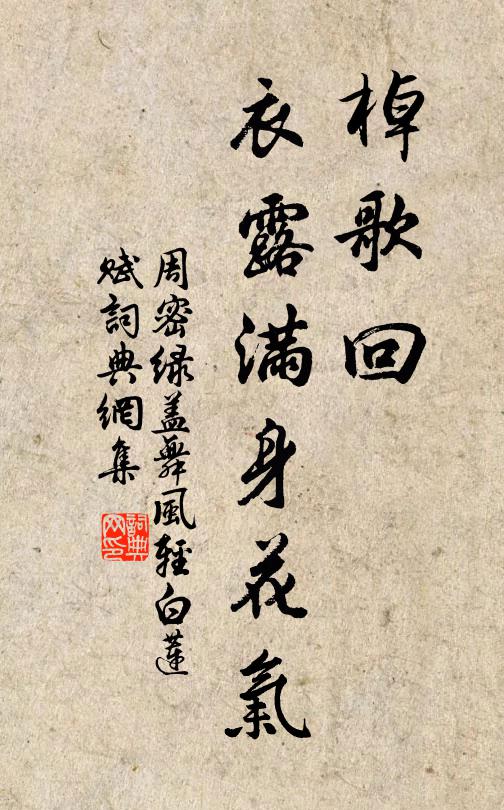 棹歌回
衣露滿身花氣
周密綠蓋舞風輕白蓮
賦詞典網集
詞典
网印